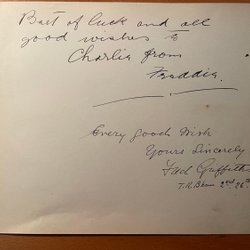 Best of luck and all
good wishes to
Charlie from
Freddie.
Every good Wish
Yours Sincerely
Griffiths